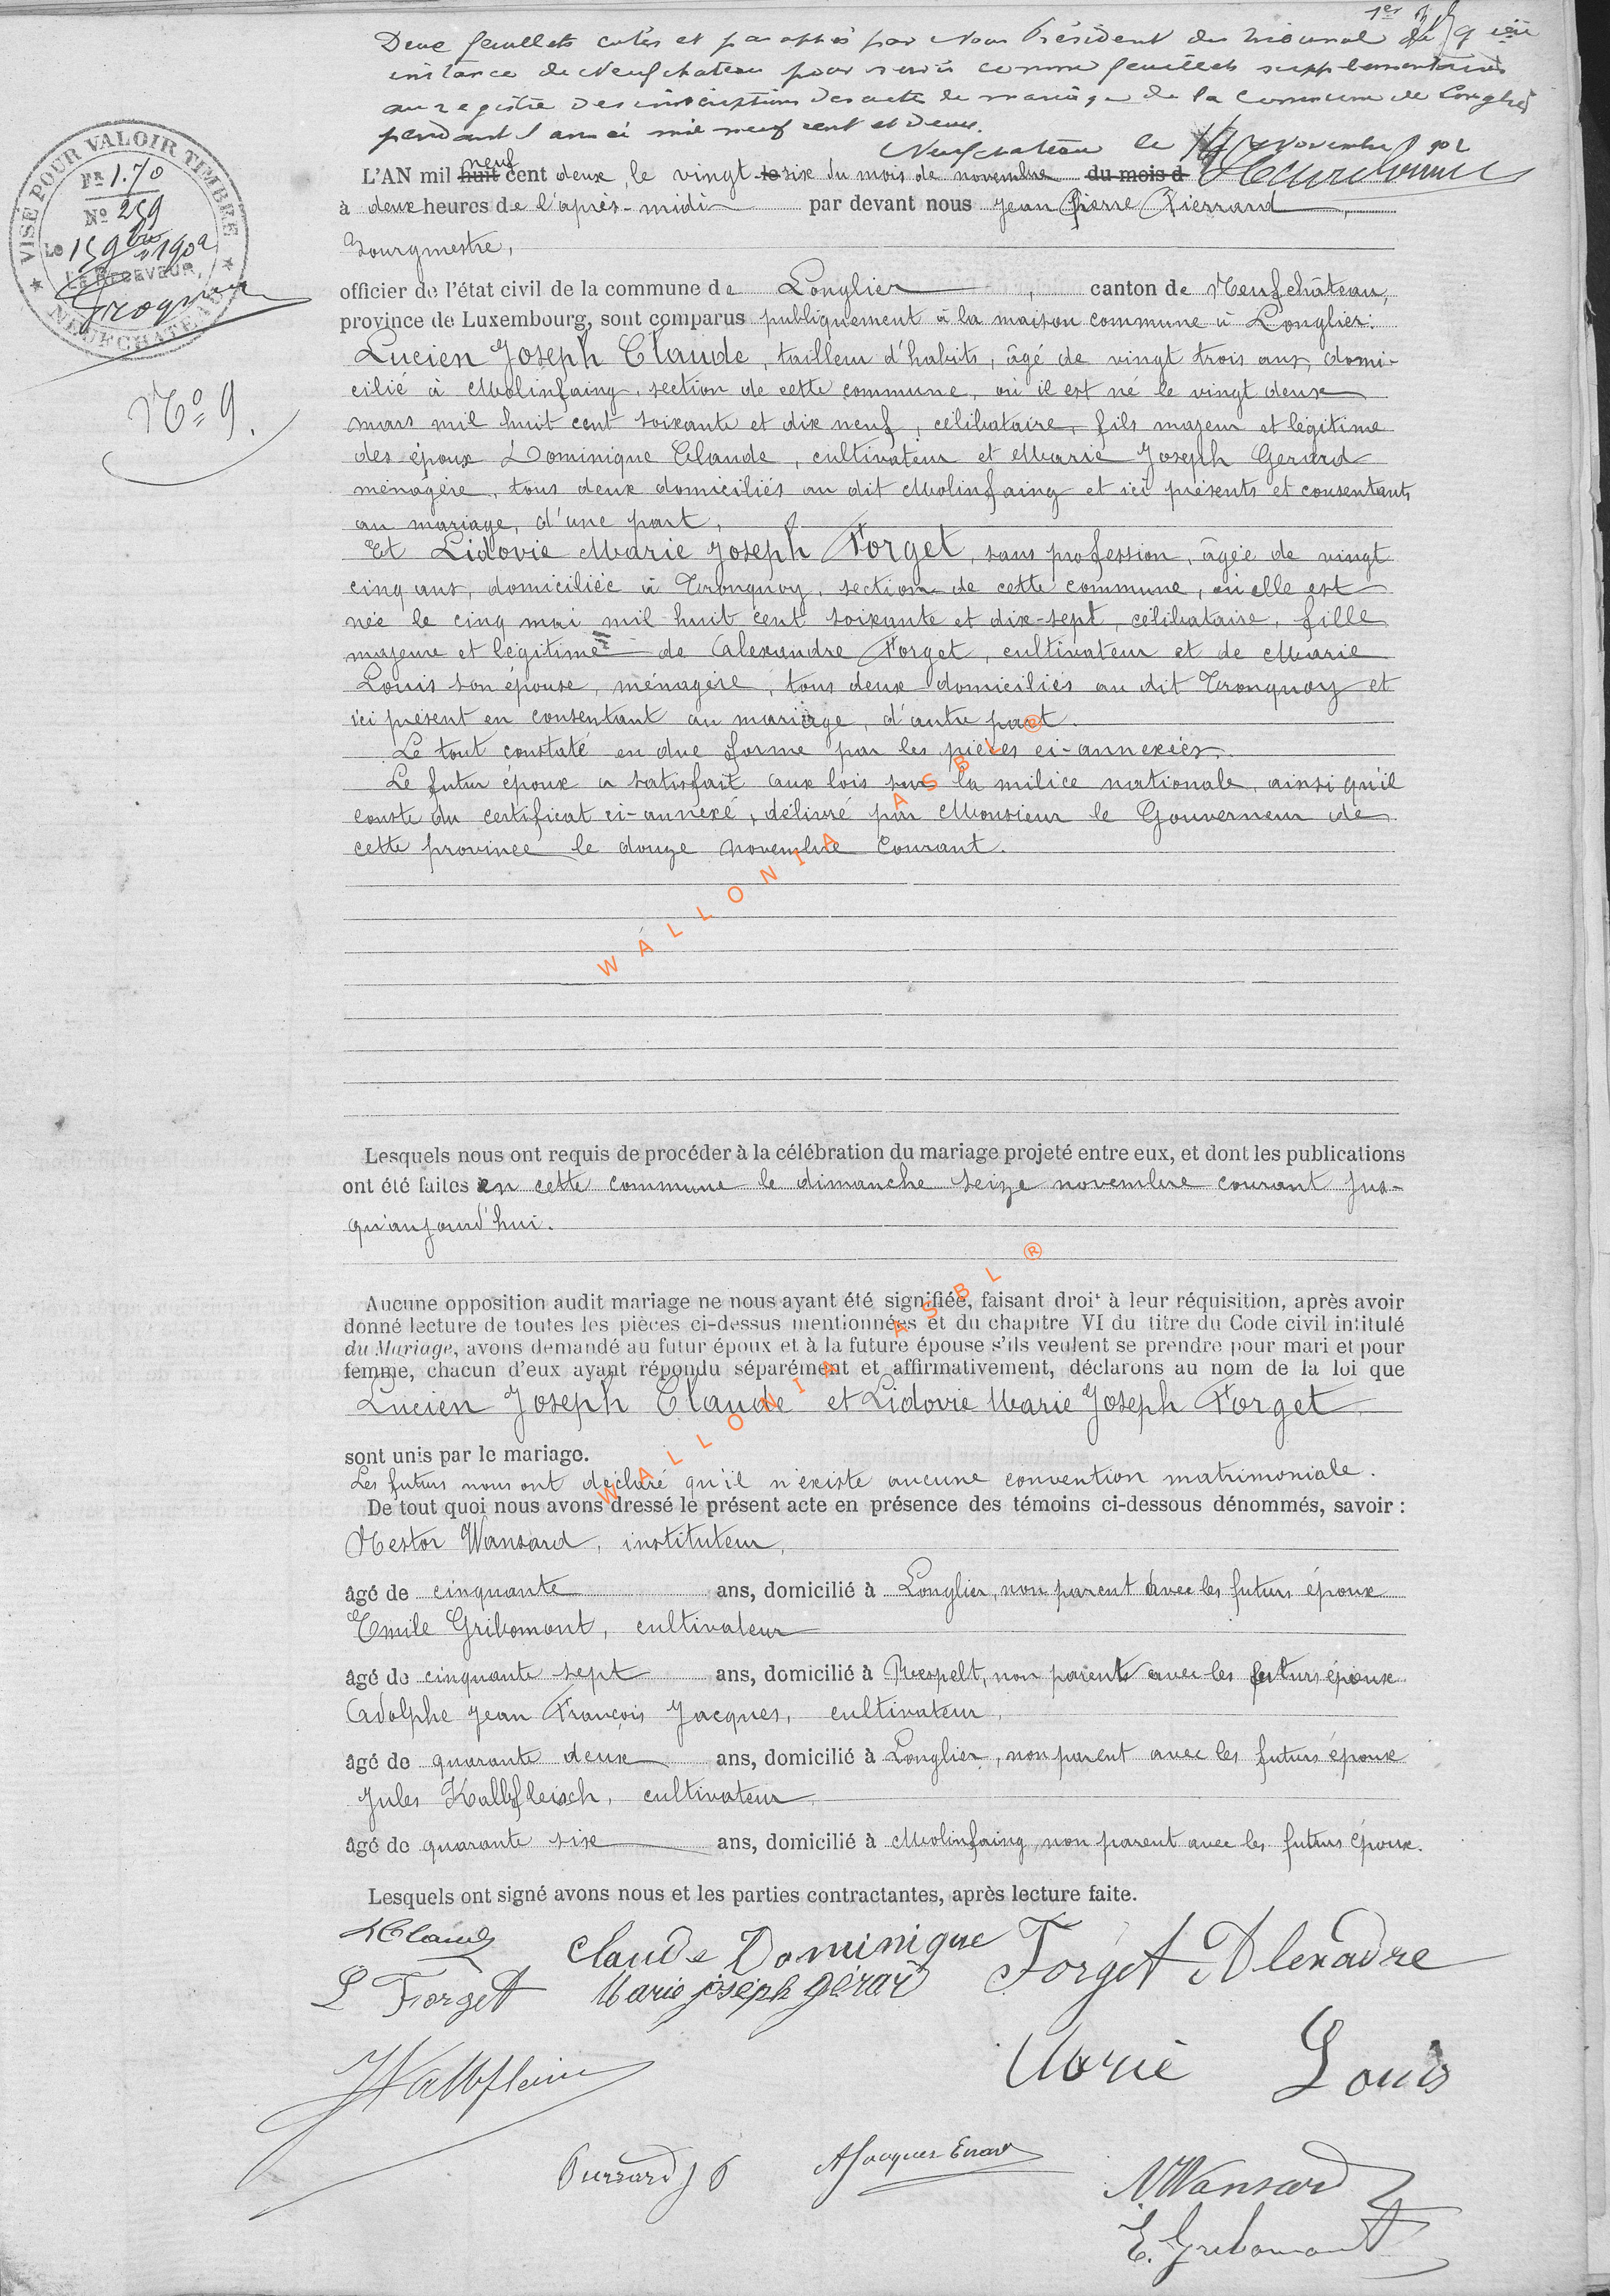 1er
Deux feuillets cotés et paraphés par Nous Président du tribunal de 1ère
instance de Neufchateau pour servir comme feuillets supplémentaires
au registre des inscriptions des actes de mariage de la Commune de Longlier
pendant l'année mil neuf cent et deux.
Neufchateau le novembre 1902
VISÉ POUR VALOIR TIMBRE
Fr 1.70
No 259
Le 15 9bre 1902
LE RECEVEUR,
NEUFCHATEAU
No 9.
L'AN mil huit neuf cent deux, le vingt le six du mois de novembre du mois d
à deux heures de l'après-midi par devant nous Jean Pierre Pierrard
bourgmestre,
officier de l'état civil de la commune de Longlier, canton de Neufchâteau,
province de Luxembourg, sont comparus publiquement à la maison commune à Longlier:
Lucien Joseph Claude, tailleur d'habits, âgé de vingt trois ans, domi-
cilié à Molinfaing, section de cette commune, où il est né le vingt deux
mars mil huit cent soixante et dix neuf, célibataire, fils majeur et légitime
des époux Dominique Claude, cultivateur et Marie Joseph Gerard
ménagère, tous deux domiciliés au dit Molinfaing et ici présents et consentants
au mariage, d'une part,
Et Lidovie Marie Joseph Forget, sans profession, âgée de vingt
cinq ans, domiciliée à Tronquoy, section de cette commune, où elle est
née le cinq mai mil huit cent soixante et dix-sept, célibataire, fille
majeure et légitime de Alexandre Forget, cultivateur et de Marie
Louis son épouse, ménagère, tous deux domiciliés au dit Tronquoy et
ici présent en consentant au mariage, d'autre part.
Le tout constaté en due forme par les pièces ci-annexées.
Le futur époux a satisfait aux lois sur la milice nationale, ainsi qu'il
conste du certificat ci-annexé, délivré par Monsieur le Gouverneur de
cette province le douze novembre courant.
WALLONIA ASBL ®
Lesquels nous ont requis de procéder à la célébration du mariage projeté entre eux, et dont les publications
ont été faites en cette commune le dimanche seize novembre courant jus-
qu'aujourd'hui.
Aucune opposition audit mariage ne nous ayant été signifiée, faisant droit à leur réquisition, après avoir
donné lecture de toutes les pièces ci-dessus mentionnées et du chapitre VI du titre du Code civil intitulé
du Mariage, avons demandé au futur époux et à la future épouse s'ils veulent se prendre pour mari et pour
femme, chacun d'eux ayant répondu séparément et affirmativement, déclarons au nom de la loi que
Lucien Joseph Claude et Lidovie Marie Joseph Forget
sont unis par le mariage.
WALLONIA ASBL ®
Les futurs nous ont déclaré qu'il n'existe aucune convention matrimoniale.
De tout quoi nous avons dressé le présent acte en présence des témoins ci-dessous dénommés, savoir :
Nestor Wansard, instituteur,
âgé de cinquante ans, domicilié à Longlier, non parent avec les futurs époux
Emile Gribomont, cultivateur
âgé de cinquante sept ans, domicilié à Respelt, non parent avec les futurs époux
Adolphe Jean François Jacques, cultivateur,
âgé de quarante deux ans, domicilié à Longlier, non parent avec les futurs époux
Jules Kalbfleisch, cultivateur,
âgé de quarante six ans, domicilié à Molinfaing, non parent avec les futurs époux.
Lesquels ont signé avons nous et les parties contractantes, après lecture faite.
LClaude Claude Dominique Forget Alexadre
L Forget Marie joseph gérard
Marie Louis
JKalbfleisch
Pierrard J P AJacques N Wansard
E. Gribomont